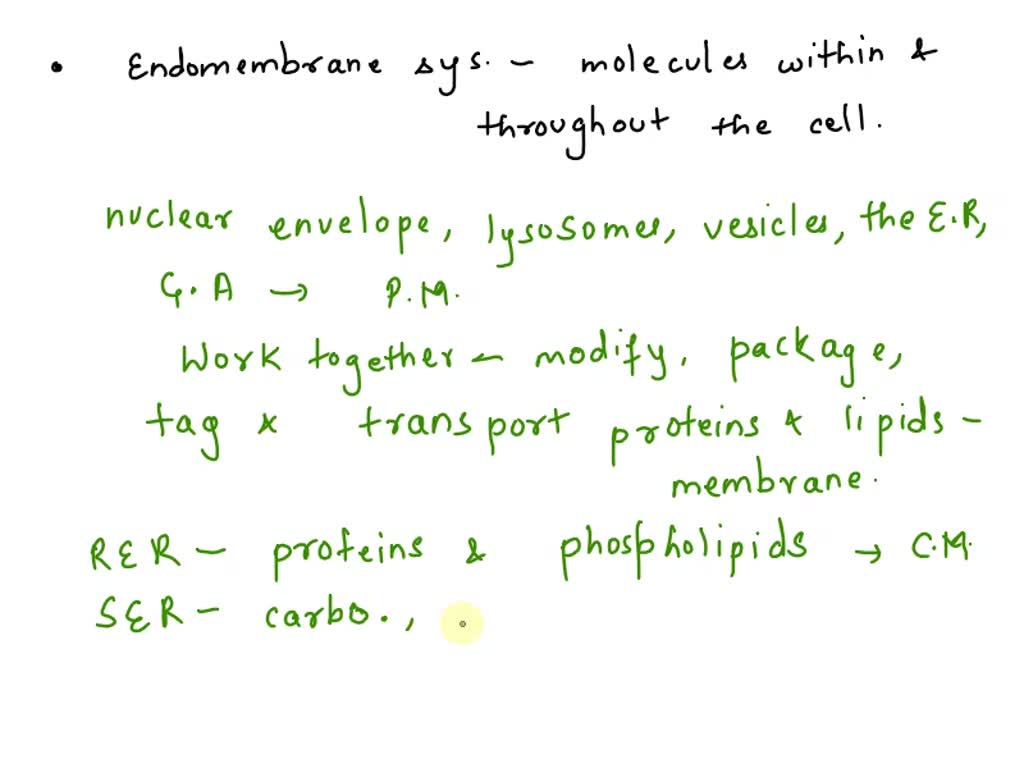 • Endomembrane sys. - molecules within &
throughout the cell.
nuclear envelope, lysosomes, vesicles, the E.R,
G.A → P.M.
Work together - modify, package,
tag & transport proteins & lipids -
membrane.
RER - proteins & phospholipids → C.M.
SER - carbo.,